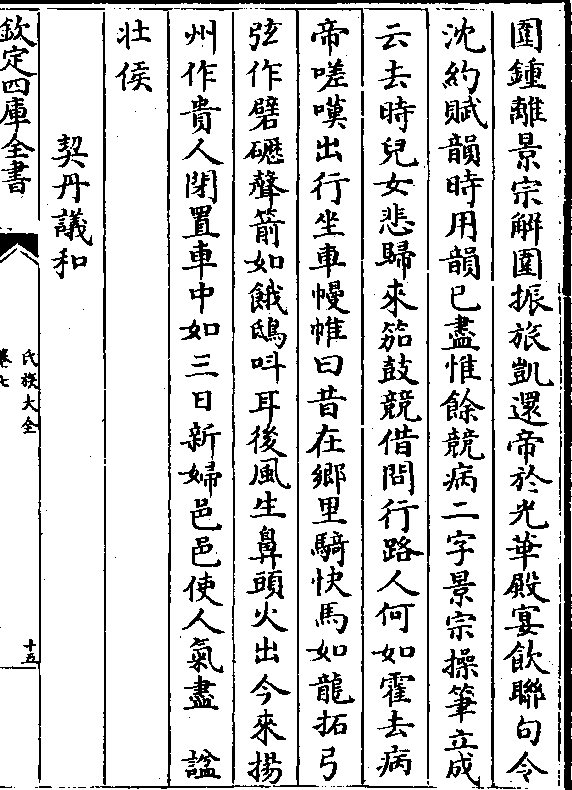 圍鍾離景宗解圍振旅凱還帝於光華殿宴飲聯句令
沈約賦韻時用韻已盡惟餘競病二字景宗操筆立成
云去時兒女悲歸來笳鼓競借問行路人何如霍去病
帝嗟嘆出行坐車幔帷曰昔在鄉里騎快馬如龍拓弓
弦作礔礰聲箭如餓鴟呌耳後風生鼻頭火出今來揚
州作貴人閉置車中如三日新婦邑邑使人氣盡　諡
壯侯
契丹議和
欽定四庫全書
氏族大全
卷七
十五